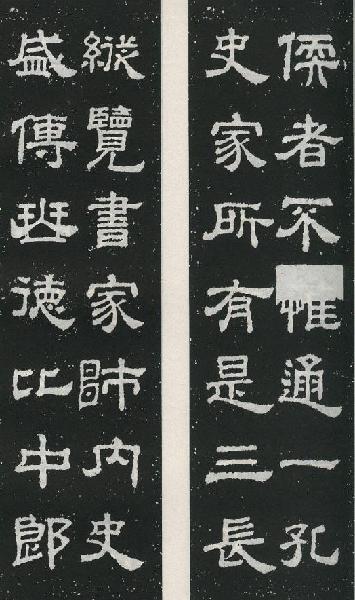 儒者不惟通一孔
史家所有是三長
縱覽書家師內史
盛傳班德比中郎